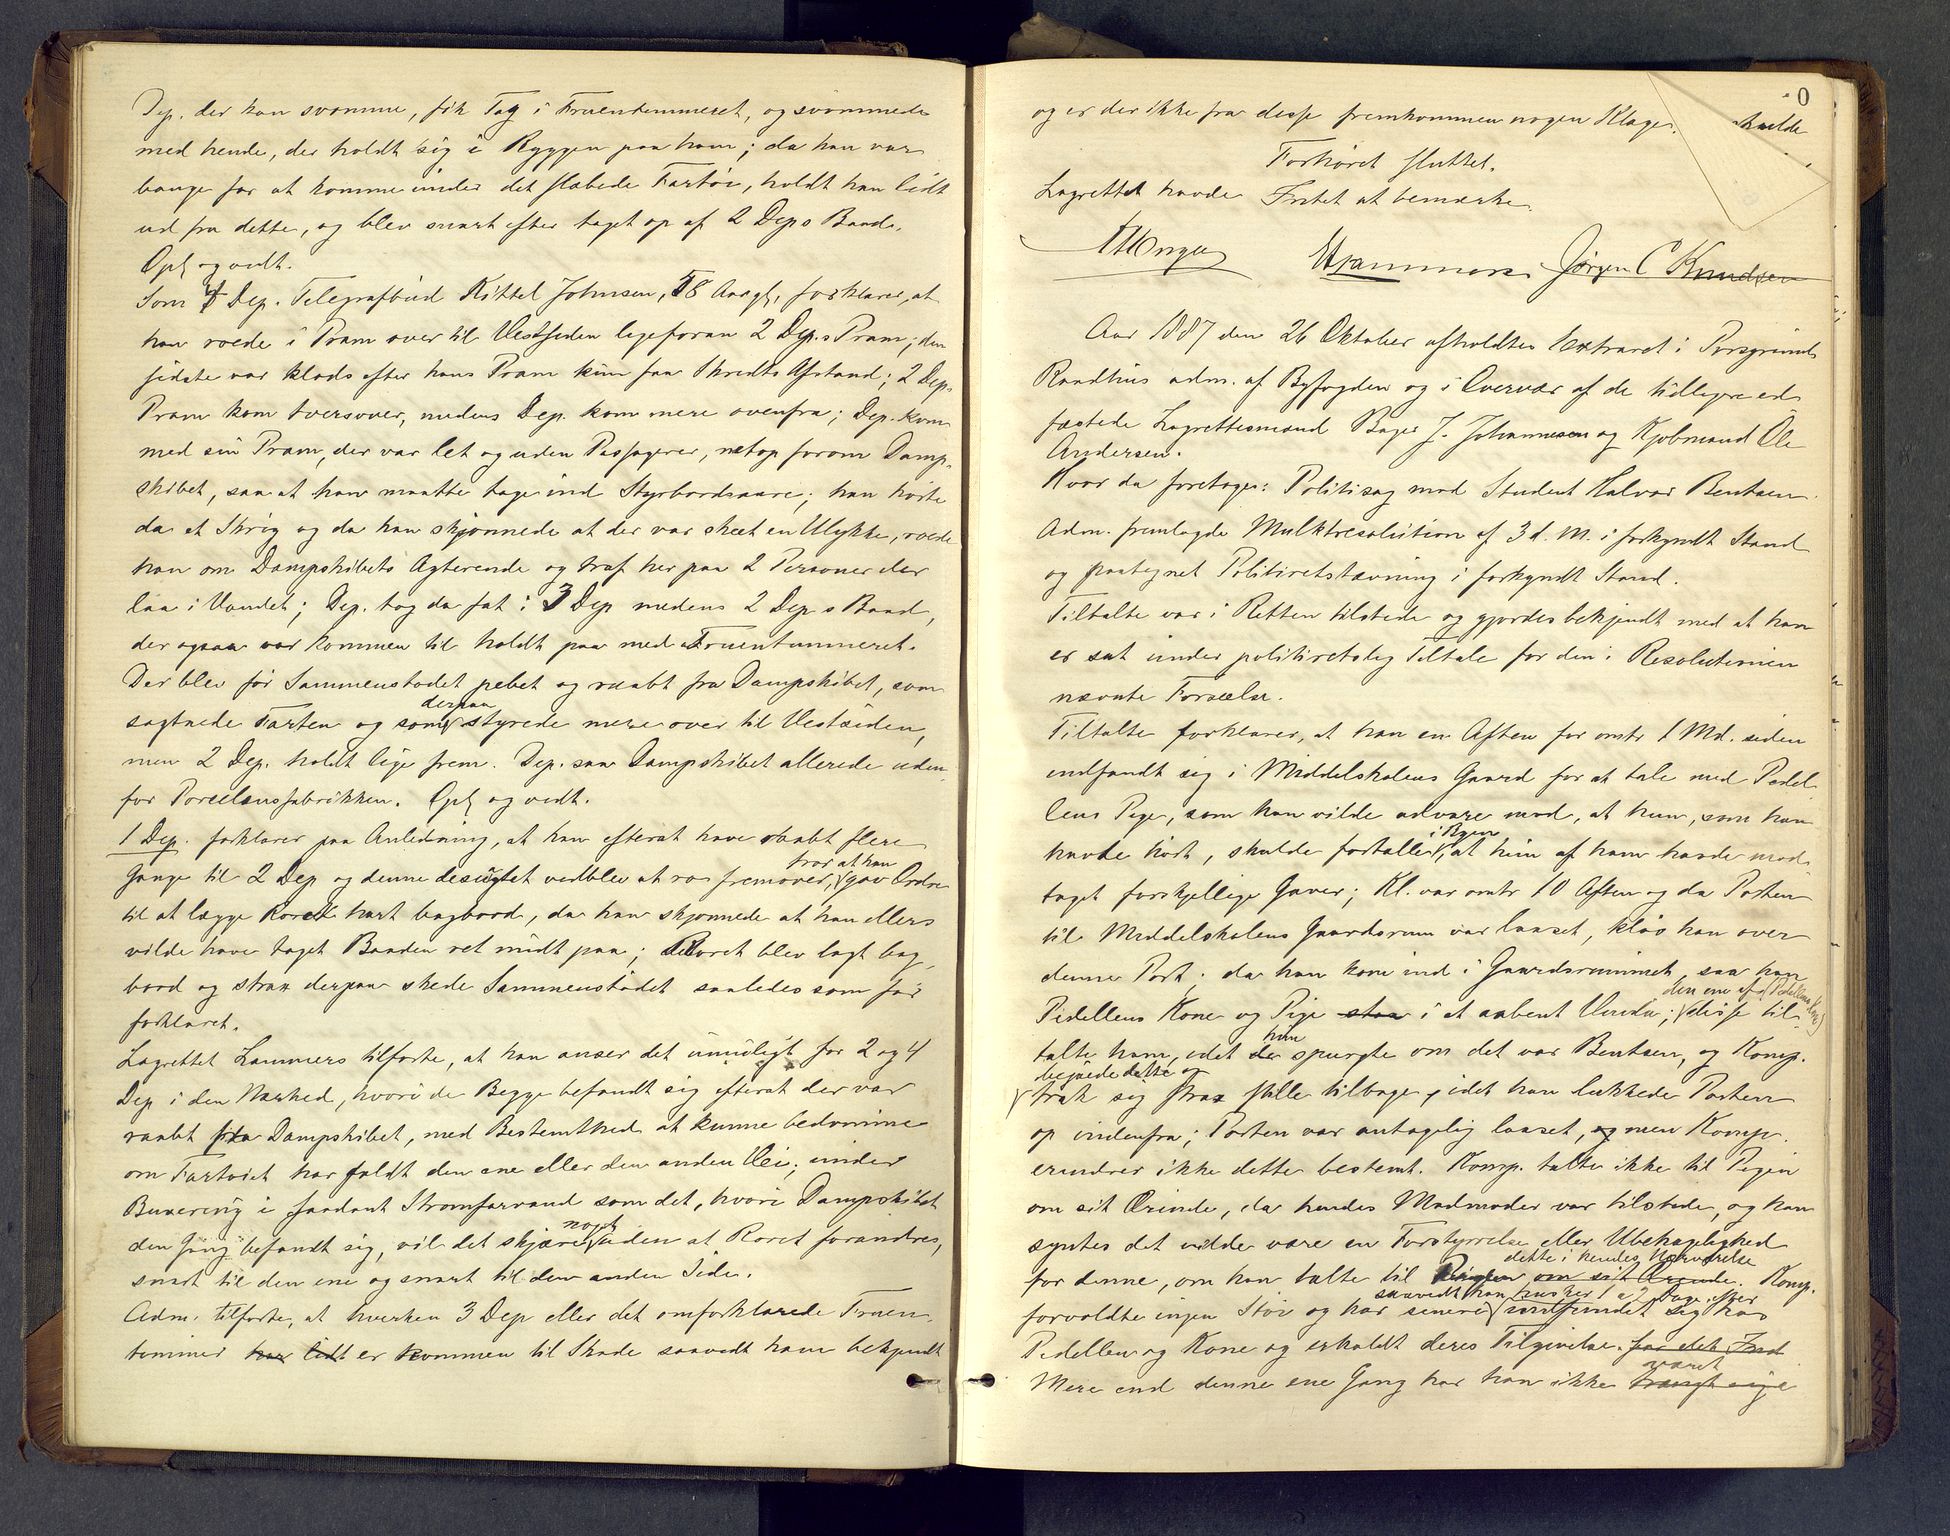 Dep. der kan svømme, fik Tag i Fruentemmeret, og svømmede
med hende, der holdt sig i Ryggen paa ham; da han var
bange for at komme under det slæbede Fartøi, holdt han lidt
ud fra dette, og blev snart efter taget op af 2 Deps Baad.
Opl. og vedt.
Som 4 Dep. Telegrafbud Kittel Johnsen, 18 Aar gl., forklarer, at
han roede i Pram over til Vestsiden ligeforan 2 Dep.s Pram; den
sidste var klods efter hans Pram kun faa Skridts Afstand; 2 Deps
Pram kom tversover, medens Dep. kom mere ovenfra; Dep. kom
med sin Pram, der var let og uden Passagerer, netop forom Damp-
skibet, saa at han maatte tage ind Styrbordsaare; han hørte
da et Skrig og da han skjønnede at der var skeet en Ulykke, roede
han om Dampskibets Agterende og traf her paa 2 Personer der
laa i Vandet; Dep. tog da fat i 3 Dep medens 2 Dep s Baad,
der ogsaa var kommen til holdt paa med Fruentimmeret.
Der blev før Sammenstødet pebet og raabt fra Dampskibet, som
sagtnede Farten og som derpaa styrede mere over til Vestsiden,
men 2 Dep. holdt lige frem. Dep. saa Dampskibet allerede uden-
for Porcelænsfabrikken. Opl. og vedt.
1 Dep. forklarer paa Anledning, at han efterat have raabt flere
Gange til 2 Dep og denne desuagtet vedblev at ro fremover, tror at han gav Ordre
til at lægge Roret hart bagbord, da han skjønnede at han ellers
vilde have taget Baaden ret midt paa; Roret blev lagt bag-
bord og strax derpaa skede Sammenstødet saaledes som før
forklaret.
Lagrettet Lammers tilførte, at han anser det umuligt for 2 og 4
Dep i den Nærhed, hvori de Begge befandt sig efterat der var
raabt fra Dampskibet, med Bestemthed at kunne bedømme
om Fartøiet har faldt den ene eller den anden Vei; under
Buxering i saadant Strømfarvand som det, hvori Dampskibet
den Gang befandt sig, vil det skjære noget uden at Roret forandres,
snart til den ene og snart til den anden Side.
Adm. tilførte, at hverken 3 Dep eller det omforklarede Fruen-
timmer har lidt er kommen til Skade saavidt ham bekjendt
og er der ikke fra disse fremkommen nogen Klage.
Forhøret sluttet.
Lagrettet havde Intet at bemærke.
Lammers. Jørgen C Knudsen
Aar 1887 den 26 Oktober afholdtes Extraret i Porsgrunds
Raadhus adm. af Byfogden og i Overvær af de tidligere ed-
fæstede Lagrettesmænd Bager J. Johannesen og Kjøbmand Ole
Andersen.
Hvor da foretoges: Politisag mod Student Halvor Bentsen.
Adm. fremlagde Mulktresolution af 3 d. M. i forkyndt Stand
og paategnet Politiretstævning i forkyndt Stand.
Tiltalte var i Retten tilstede og gjordes bekjendt med at han
er sat under politiretslig Tiltale for den i Resolutionen
nævnte Forseelse.
Tiltalte forklarer, at han en Aften for omtr 1 Md. siden
indfandt sig i Middelskolens Gaard for at tale med Pedel-
lens Pige, som han vilde advare mod, at hun, som han
havde hørt, skulde fortalle i Byen, at hun af ham havde mod-
taget forskjellige Gaver; Kl. var omtr 10 Aften og da Porten
til Middelskolens Gaardsrum var laaset, kløv han over
denne Port; da han kom ind i Gaardsrummet, saa han
Pedellens Kone og Pige staa i et aabent Vindu; den ene af disse (Pedellens Kone) til-
talte ham, idet hun spurgte om det var Bentsen, og Komp.
bejaede dette og trak sig strax stille tilbage, idet han lukkede Porten
op indenfra; Porten var antagelig laaset, og men Komp.
erindrer ikke dette bestemt. Komp. talte ikke til Pigen
om sit Ærinde, da hendes Madmoder var tilstede, og han
syntes det vilde være en Forstyrrelse eller Ubehagelighed
for denne, om han talte til Pigen om sit Ærinde dette i hendes Nærværelse. Komp.
forvoldte ingen Støi og har senere saavidt han husker 1 a 2 Dage efter indfundet sig hos
Pedellen og Kone og erholdt deres Tilgivelse. for det Ind
Mere end denne ene Gang har han ikke været trængt sig